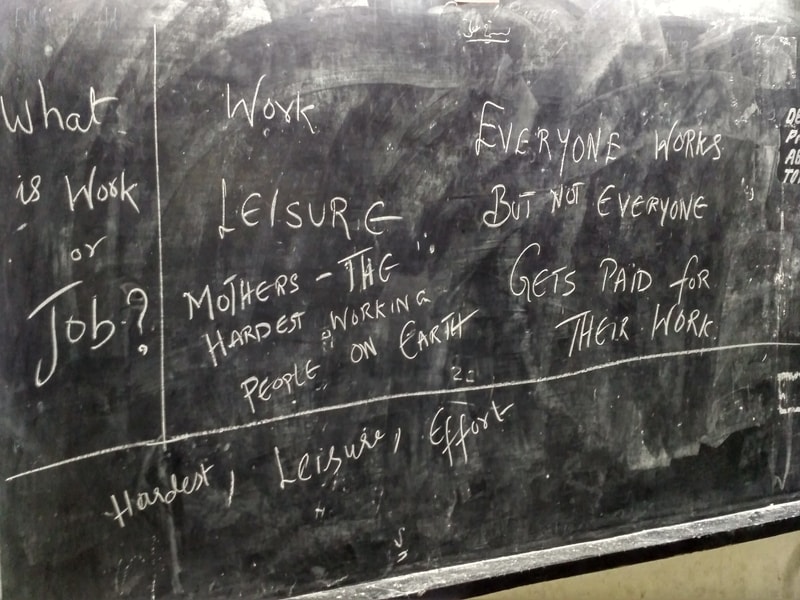 What
is Work
or
Job?
Work
LEISURE
MOTHERS - THE
HARDEST WORKING
PEOPLE ON EARTH
EVERYONE WORKS
BUT NOT EVERYONE
GETS PAID for
THEIR WORK.
Hardest, Leisure, Effort